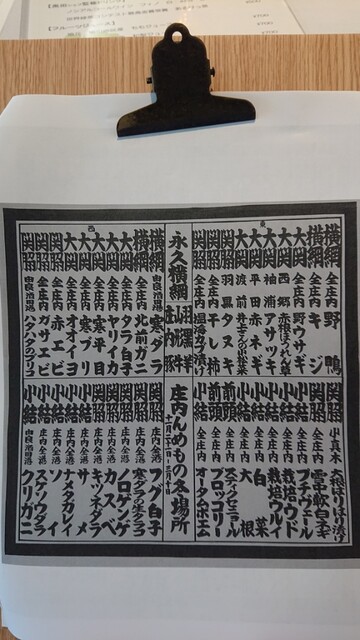 東
横綱 全庄内 野鴨
横綱 全庄内 キジ
大関 全庄内 野ウサギ
大関 西郷 赤根ほうれん草
大関 袖浦 アサツキ
大関 平田 赤ネギ
大関 渡前 井上さんの小松菜
関脇 羽黒 タヌキ
関脇 全庄内 干し柿
関脇 温海 カブ漬け
関脇 小真木
関脇 全庄内 雪中軟白ネギ
小結 全庄内 プチヴェール
小結 全庄内 栽培ウド
小結 全庄内 栽培ウルイ
小結 全庄内 白菜
小結 全庄内 大根
前頭 全庄内 スティックセニョール
前頭 全庄内 ブロッコリー
小結 全庄内 オータムポエム
永久横綱
羽黒羊
山形牛
庄内豚
庄内んめもの冬場所
西
横綱 由良酒田港 寒ダラ
横綱 全庄内 北前ガニ
大関 全庄内 タラ白子
大関 全庄内 ヤリイカ
大関 全庄内 寒平目
大関 全庄内 寒ブリ
大関 全庄内 オオイヨ
関脇 全庄内 赤エビ
関脇 全庄内 ガサエビ
関脇 由良酒田港 ハタハタのブリコ
関脇 庄内全港 フグ白子
関脇 庄内全港 寒ダラ生タラコ
関脇 庄内全港 ドロゲンゲ
関脇 庄内全港 カスベ
小結 庄内全港 キツネダラ
小結 庄内全港 サメ
小結 庄内全港 ナメタガレイ
小結 庄内全港 ソイ
小結 庄内全港 スケソウダラ
小結 由良酒田港 クリガニ